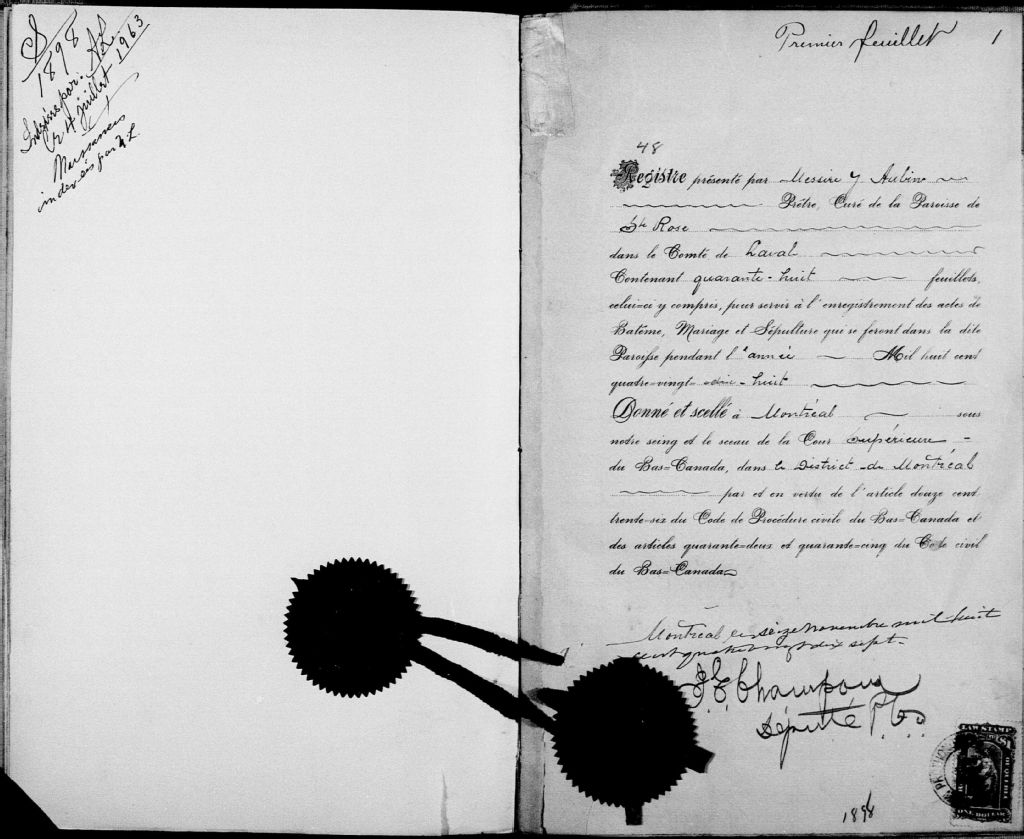 S
1898
24 juillet 1963
Naissances
indexées par
Premier feuillet 1
48
Registre présenté par Messire J Aubin
Prêtre, Curé de la Paroisse de
Ste Rose
dans le Comté de Laval
Contenant quarante-huit feuillets,
celui=ci y compris, pour servir à l'enregistrement des actes de
Batême, Mariage et Sépulture qui se feront dans la dite
Paroisse pendant l'année Mil huit cent
quatre=vingt= dix-huit
Donné et scellé à Montréal sous
notre seing et le sceau de la Cour Supérieure
du Bas=Canada, dans le District de Montréal
par et en vertu de l'article douze cent
trente-six du Code de Procédure civile du Bas=Canada et
des articles quarante=deux et quarante=cinq du Code civil
du Bas=Canada
Montréal le seize novembre mil huit
cent quatre vingt dix sept.
Champoux
Député P.
LAW STAMP
$1
ONE DOLLAR
1898